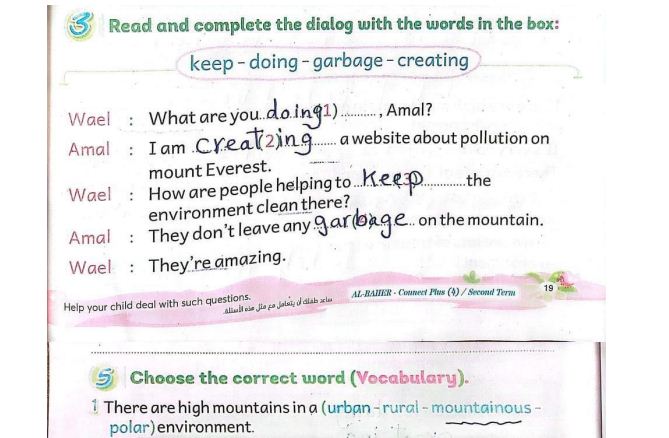 3 Read and complete the dialog with the words in the box:
keep - doing - garbage - creating
Wael : What are you..doing(1)........., Amal?
Amal : I am .Creat(2)ing...... a website about pollution on
mount Everest.
Wael : How are people helping to...Keep............the
environment clean there?
Amal : They don't leave any garbage.. on the mountain.
Wael : They're amazing.
Help your child deal with such questions.
ساعد طفلك أن يتعامل مع مثل هذه الأسئلة.
AL-BAHER - Connect Plus (4) / Second Term
19
5 Choose the correct word (Vocabulary).
1 There are high mountains in a (urban - rural - mountainous -
polar) environment.